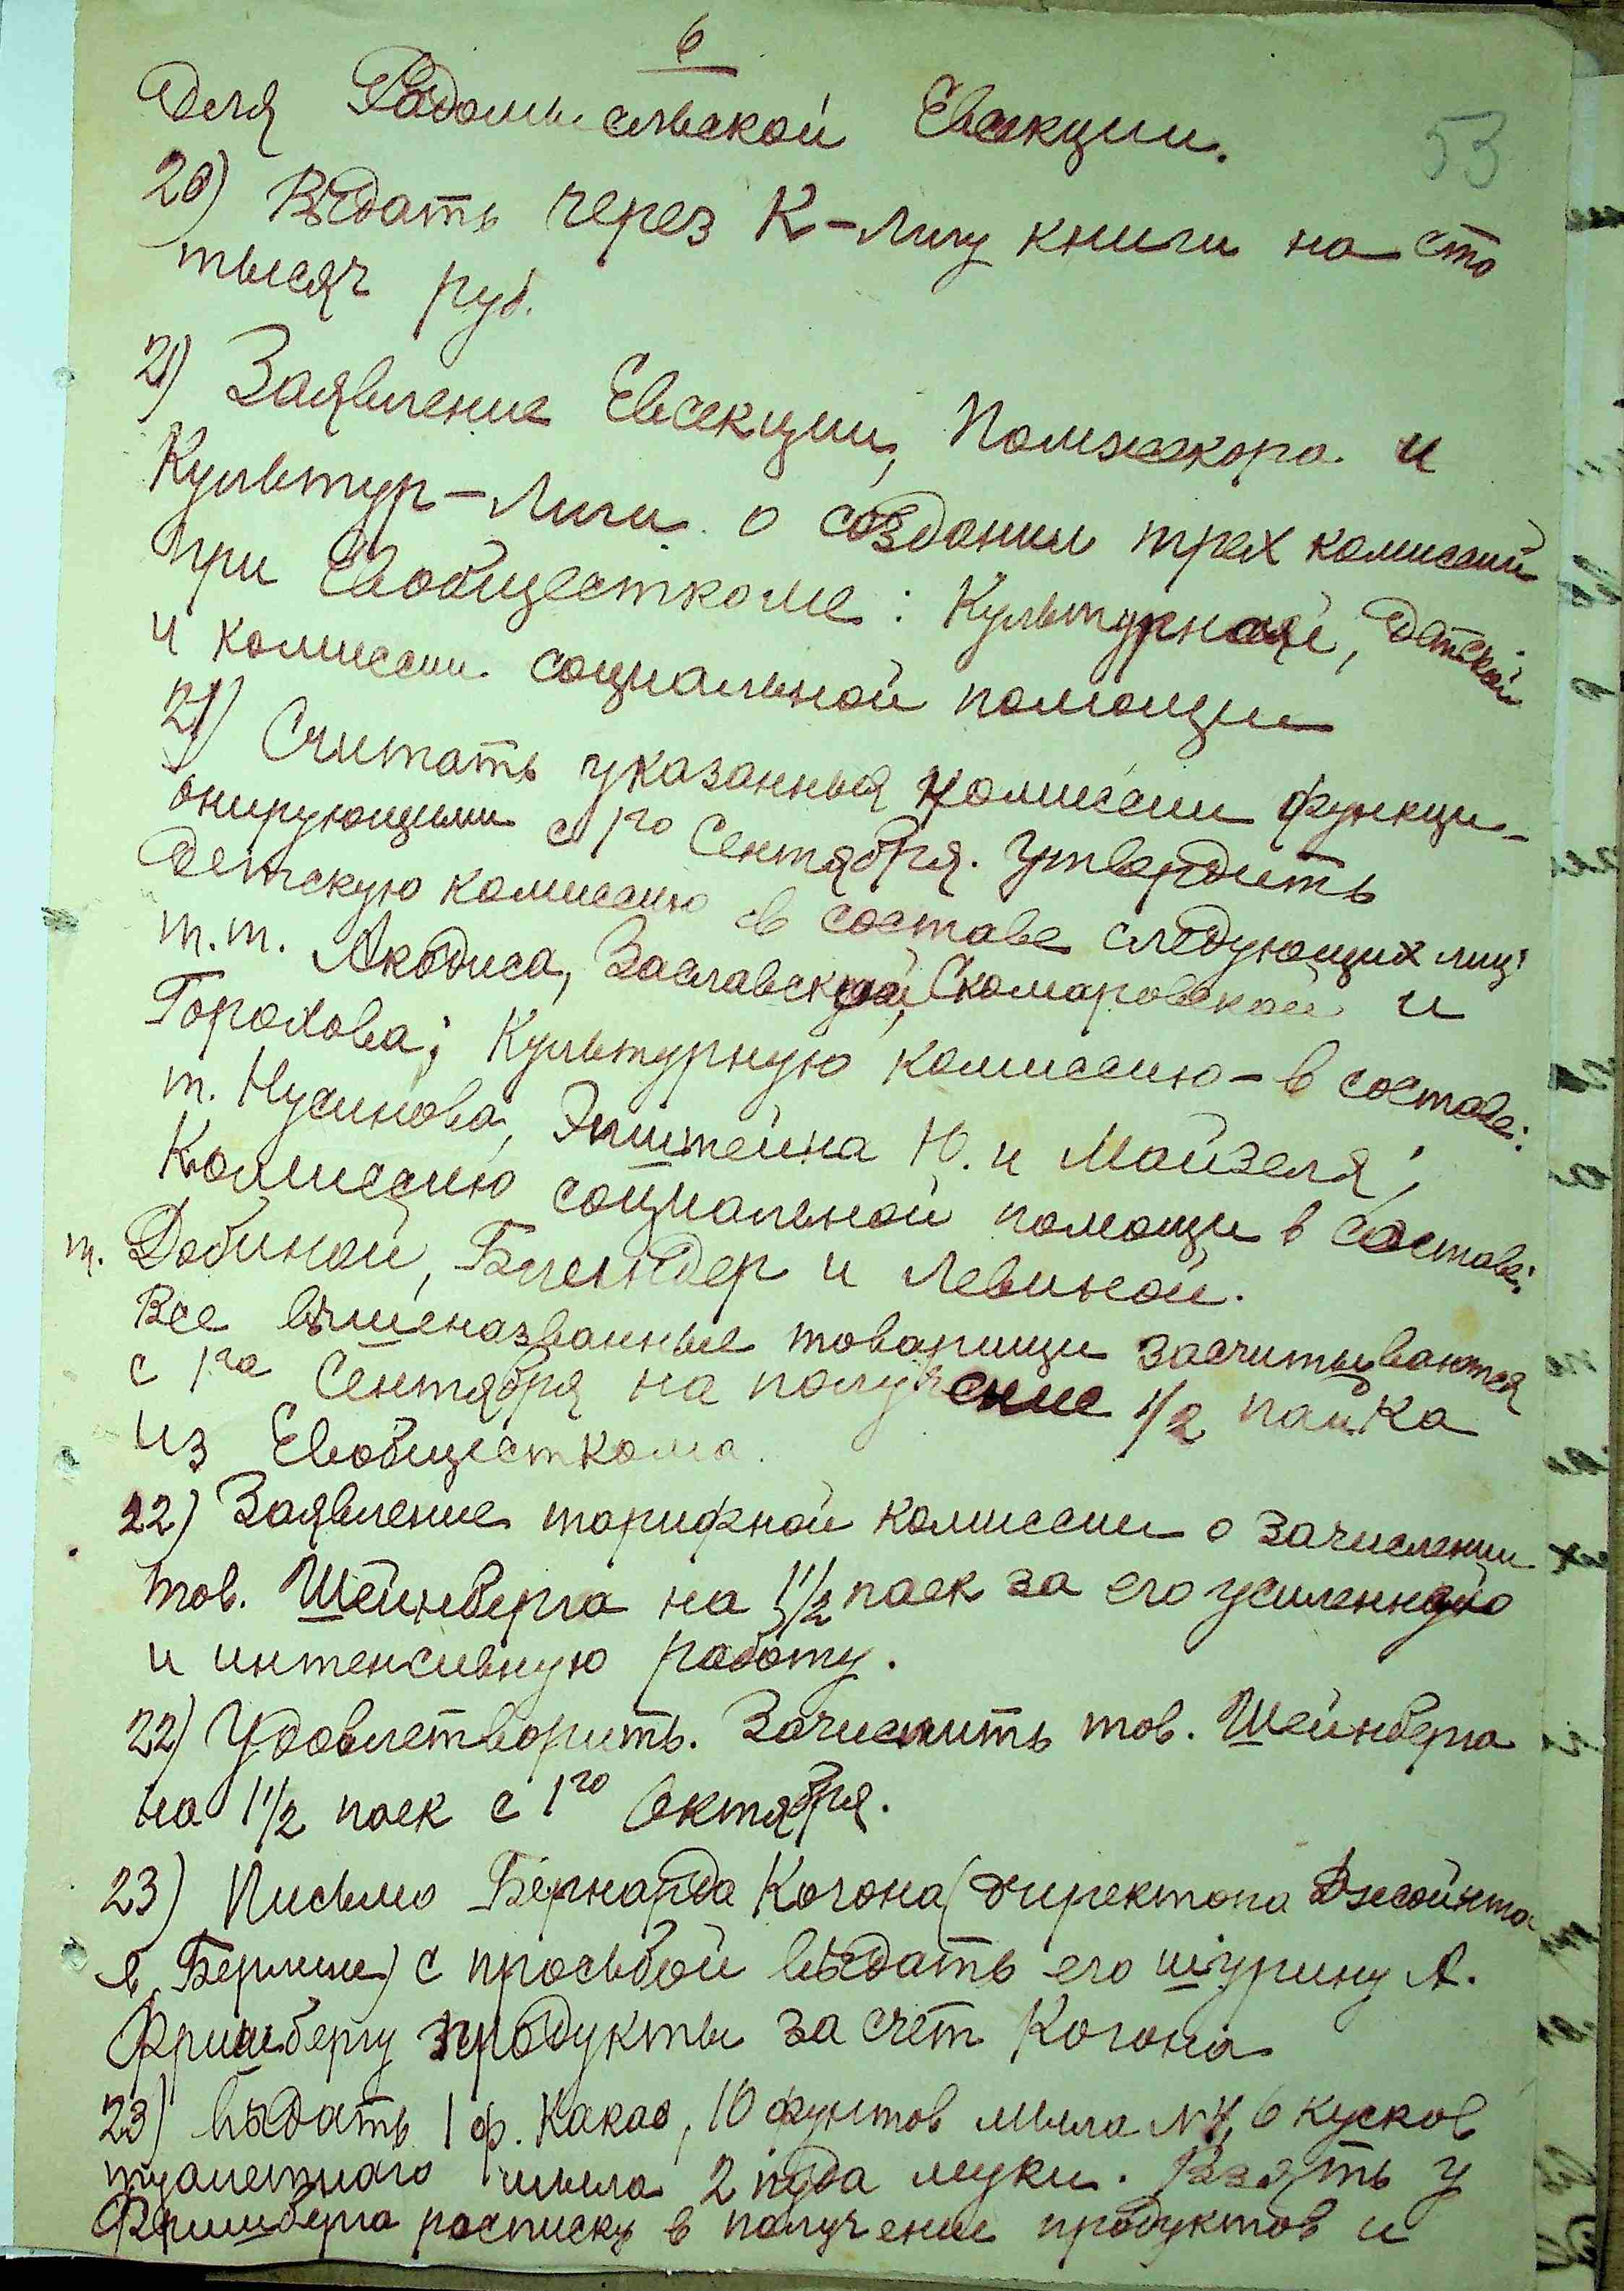 6
53
для Радомысльской Евсекции.
20) Выдать через К-Лигу книги на сто
тысяч руб.
21) Заявление Евсекции, Помжекора и
Культур-Лиги о создании трех комиссий
при Евобщесткоме: Культурной, Детской
и комиссии социальной помощи
21) Считать указанныя комиссии функци-
онирующими с 1го Сентября. Утвердить
Детскую комиссию в составе следующих лиц:
т.т. Заславской, Скомаровской и
Горохова; Культурную комиссию – в составе:
т. Нусинова, Эпштейна Ю. и Майзеля;
Комиссию социальной помощи в составе:
т. Добиной, Блендер и Левиной.
Все вышеназванные товарищи засчитываются
с 1го Сентября на получение 1/2 пайка
из Евобщесткома.
22) Заявление тарифной комиссии о зачислении
тов. Шейнберга на 1 1/2 паек за его усиленную
и интенсивную работу.
22) Удовлетворить. Зачислить тов. Шейнберга
на 1 1/2 паек с 1го Октября.
23) Письмо Бернарда Когона (директора Джойнта
в Берлине) с просьбой выдать его шурину А.
Фришбергу продукты за счет Когона
23) выдать 1 ф. Какао, 10 фунтов мыла N4, 6 кусков
туалетного мыла 2 пуда муки. Взять у
Фришберга расписку в получение продуктов и